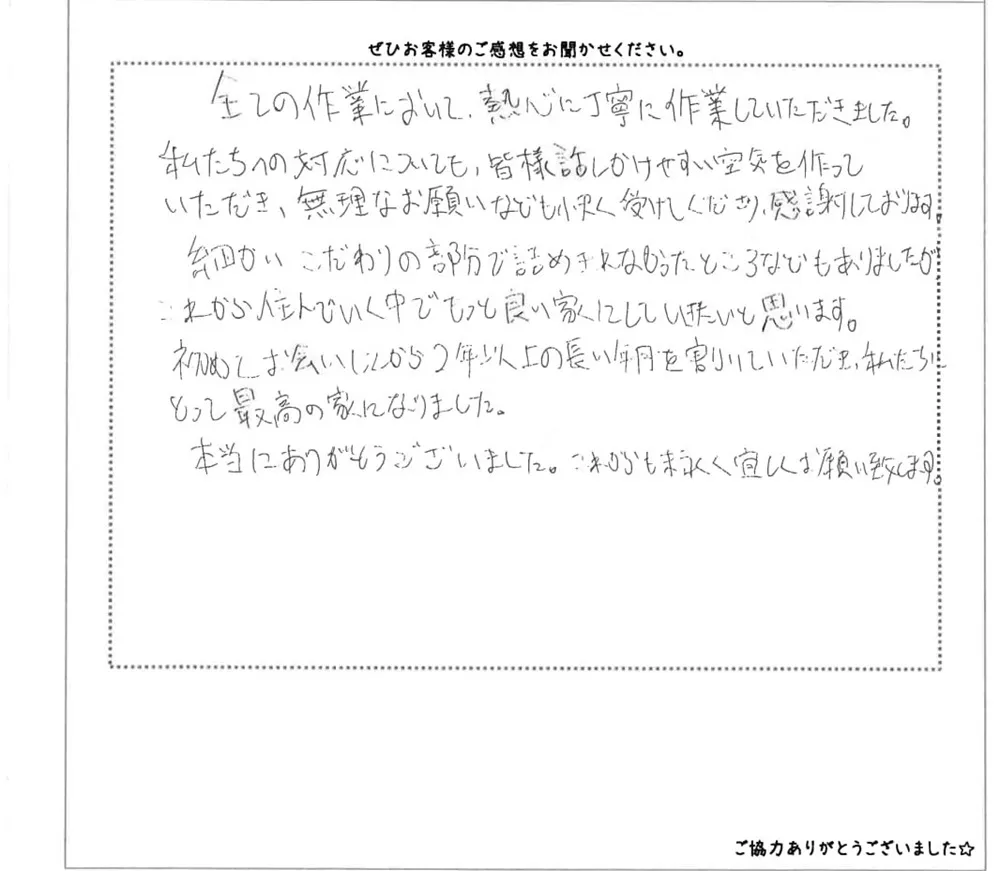 ぜひお客様のご感想をお聞かせください。
全ての作業において、熱心に丁寧に作業していただきました。
私たちへの対応についても、皆様話しかけやすい空気を作って
いただき、無理なお願いなども快く受けてくださり、感謝しております。
細かいこだわりの部分で詰めきれなかったところなどもありましたが
これから住んでいく中でもっと良い家にしていきたいと思います。
初めてお会いしてから2年以上の長い年月を割いていただき、私たちに
とって最高の家になりました。
本当にありがとうございました。これからも末永く宜しくお願い致します。
ご協力ありがとうございました☆